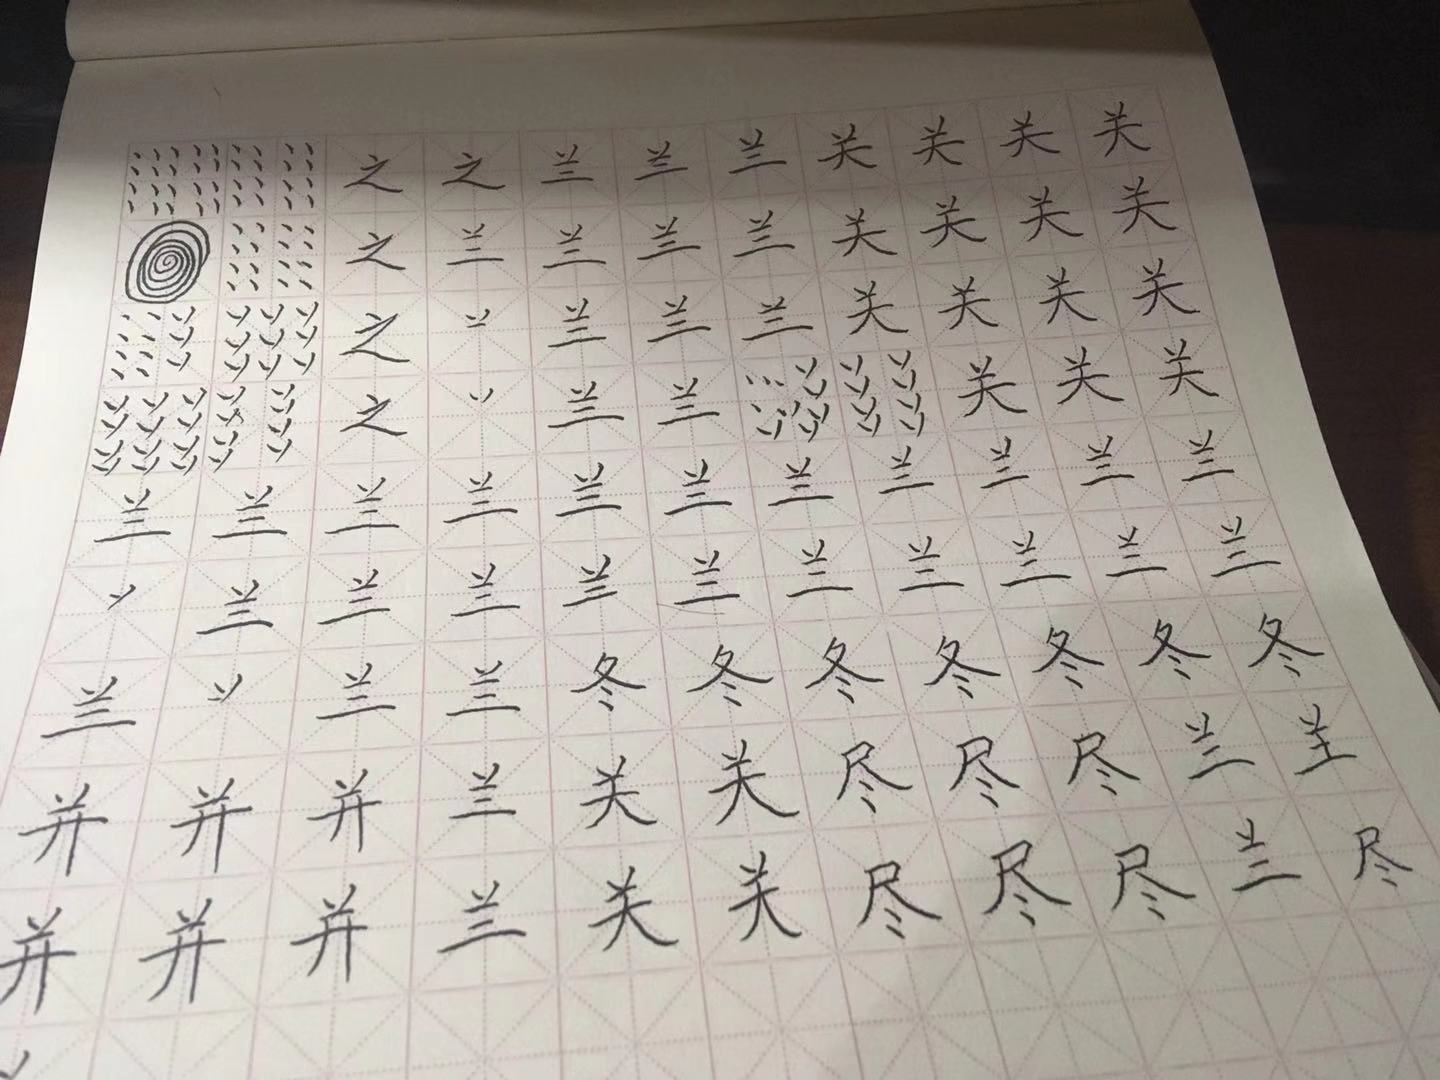 之之兰兰兰关关关关
之兰兰兰兰关关关关
之兰兰兰关关关关
之兰兰关关关
兰兰兰兰兰兰兰兰兰兰兰
兰兰兰兰兰兰兰兰兰兰
兰兰兰冬冬冬冬冬冬冬
并并并兰关关尽尽尽兰
并并并兰关关尽尽尽兰尽